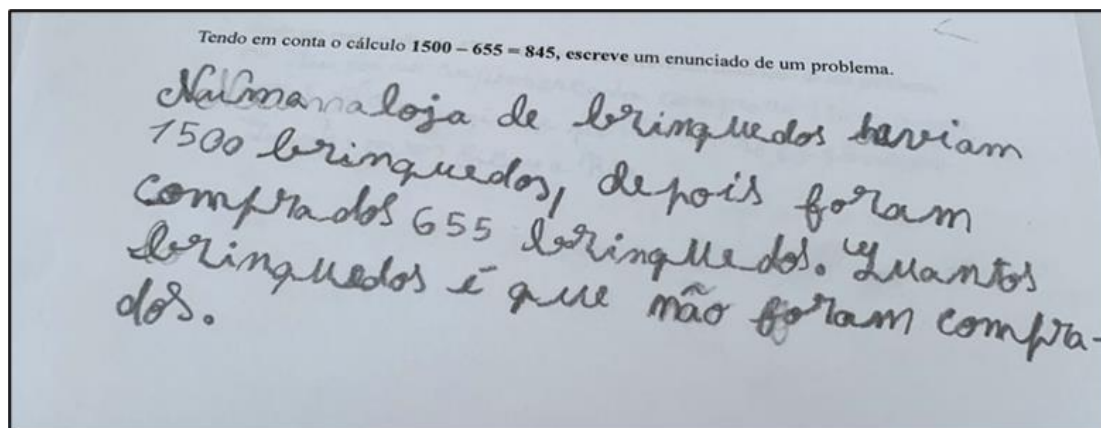 Tendo em conta o cálculo 1500 – 655 = 845, escreve um enunciado de um problema.
Numa loja de brinquedos haviam
1500 brinquedos, depois foram
comprados 655 brinquedos. Quantos
brinquedos é que não foram compra-
dos.